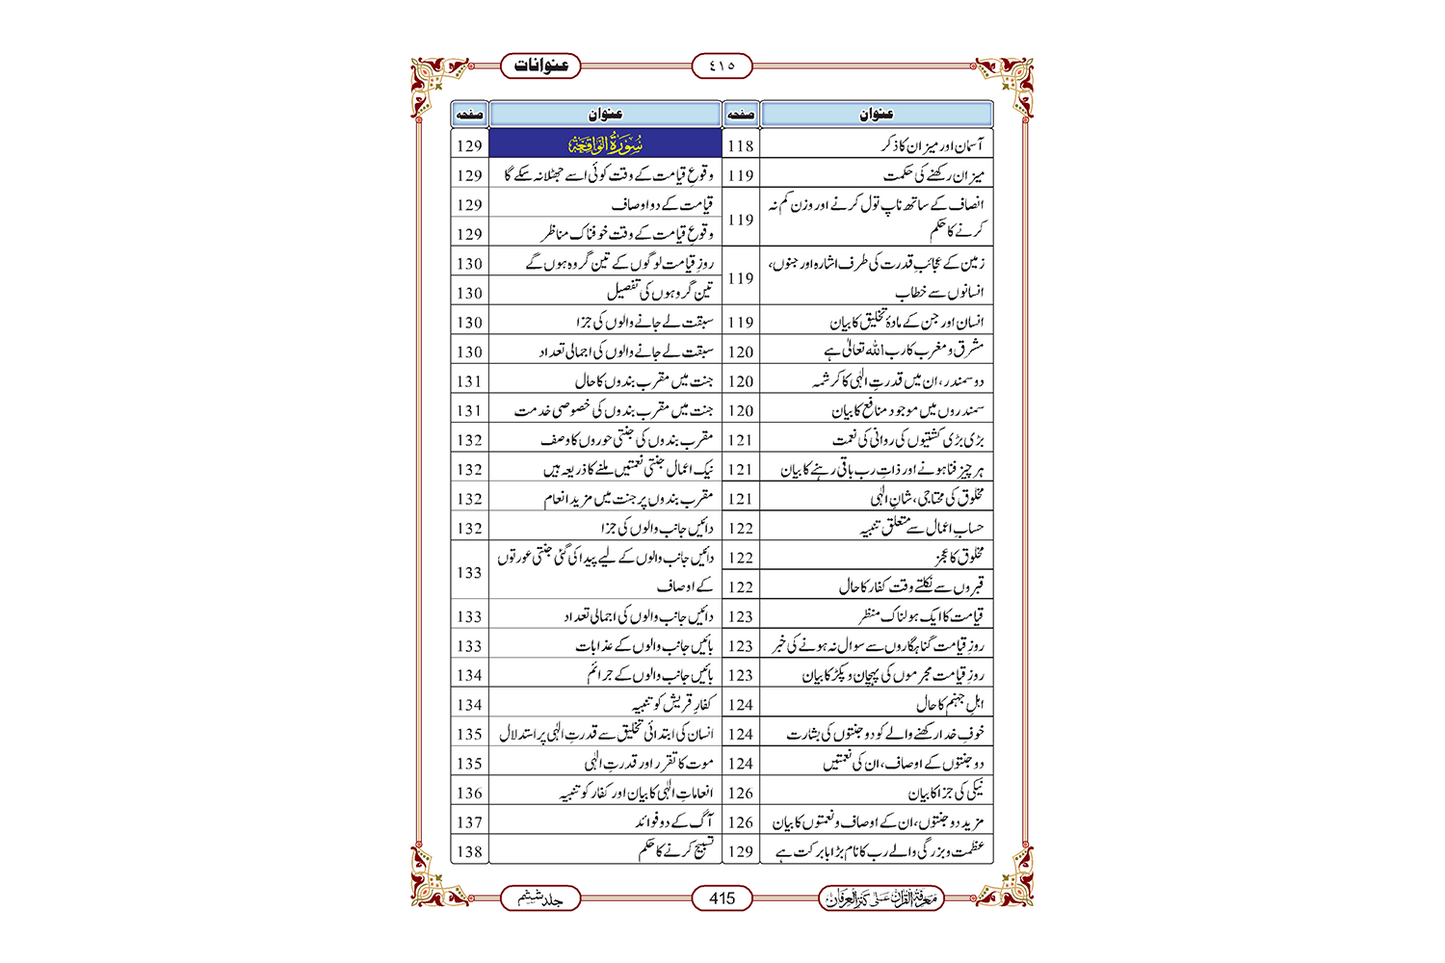 عنوانات
٤١٥
عنوان
صفحہ
آسمان اور میزان کا ذکر
118
میزان رکھنے کی حکمت
119
انصاف کے ساتھ ناپ تول کرنے اور وزن کم نہ
کرنے کا حکم
119
زمین کے عجائبِ قدرت کی طرف اشارہ اور جنوں،
انسانوں سے خطاب
119
انسان اور جن کے مادۂ تخلیق کا بیان
119
مشرق و مغرب کا رب اللہ تعالیٰ ہے
120
دو سمندر، ان میں قدرتِ الٰہی کا کرشمہ
120
سمندروں میں موجود منافع کا بیان
120
بڑی بڑی کشتیوں کی روانی کی نعمت
121
ہر چیز فنا ہونے اور ذاتِ رب باقی رہنے کا بیان
121
مخلوق کی محتاجی، شانِ الٰہی
121
حسابِ اعمال سے متعلق تنبیہ
122
مخلوق کا عجز
122
قبروں سے نکلتے وقت کفار کا حال
122
قیامت کا ایک ہولناک منظر
123
روزِ قیامت گناہگاروں سے سوال نہ ہونے کی خبر
123
روزِ قیامت مجرموں کی پہچان و پکڑ کا بیان
123
اہلِ جہنم کا حال
124
خوفِ خدا رکھنے والے کو دو جنتوں کی بشارت
124
دو جنتوں کے اوصاف، ان کی نعمتیں
124
نیکی کی جزا کا بیان
126
مزید دو جنتوں، ان کے اوصاف و نعمتوں کا بیان
126
عظمت و بزرگی والے رب کا نام بڑا بابرکت ہے
129
عنوان
صفحہ
سُوْرَةُ الْوَاقِعَةِ
129
وقوعِ قیامت کے وقت کوئی اسے جھٹلا نہ سکے گا
129
قیامت کے دو اوصاف
129
وقوعِ قیامت کے وقت خوفناک مناظر
129
روزِ قیامت لوگوں کے تین گروہ ہوں گے
130
تین گروہوں کی تفصیل
130
سبقت لے جانے والوں کی جزا
130
سبقت لے جانے والوں کی اجمالی تعداد
130
جنت میں مقرب بندوں کا حال
131
جنت میں مقرب بندوں کی خصوصی خدمت
131
مقرب بندوں کی جنتی حوروں کا وصف
132
نیک اعمال جنتی نعمتیں ملنے کا ذریعہ ہیں
132
مقرب بندوں پر جنت میں مزید انعام
132
دائیں جانب والوں کی جزا
132
دائیں جانب والوں کے لیے پیدا کی گئی جنتی عورتوں
کے اوصاف
133
دائیں جانب والوں کی اجمالی تعداد
133
بائیں جانب والوں کے عذابات
133
بائیں جانب والوں کے جرائم
134
کفارِ قریش کو تنبیہ
134
انسان کی ابتدائی تخلیق سے قدرتِ الٰہی پر استدلال
135
موت کا تقرر اور قدرتِ الٰہی
135
انعاماتِ الٰہی کا بیان اور کفار کو تنبیہ
136
آگ کے دو فوائد
137
تسبیح کرنے کا حکم
138
معرفۃ القرآن علی کنز العرفان
415
جلد ششم